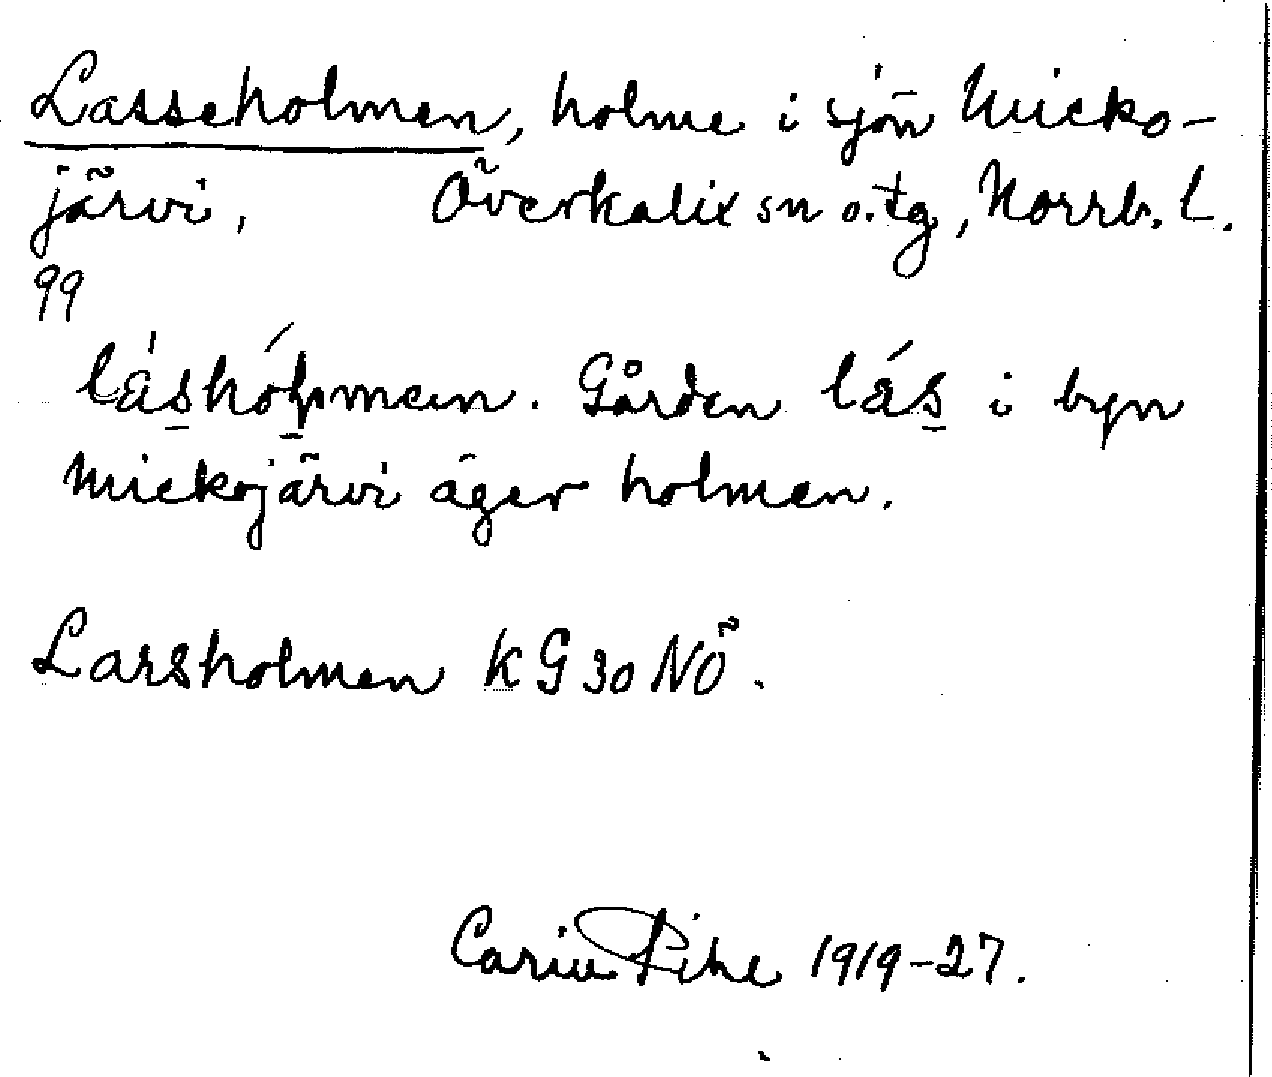 Lasseholmen, holme i sjön Micko-
järvi, Överkalix sn o. tg, Norrb. L.
99
Gården lás i byn
Mickojärvi äger holmen.
Larsholmen KG 30 NÖ.
Carin Pihl 1919-27.